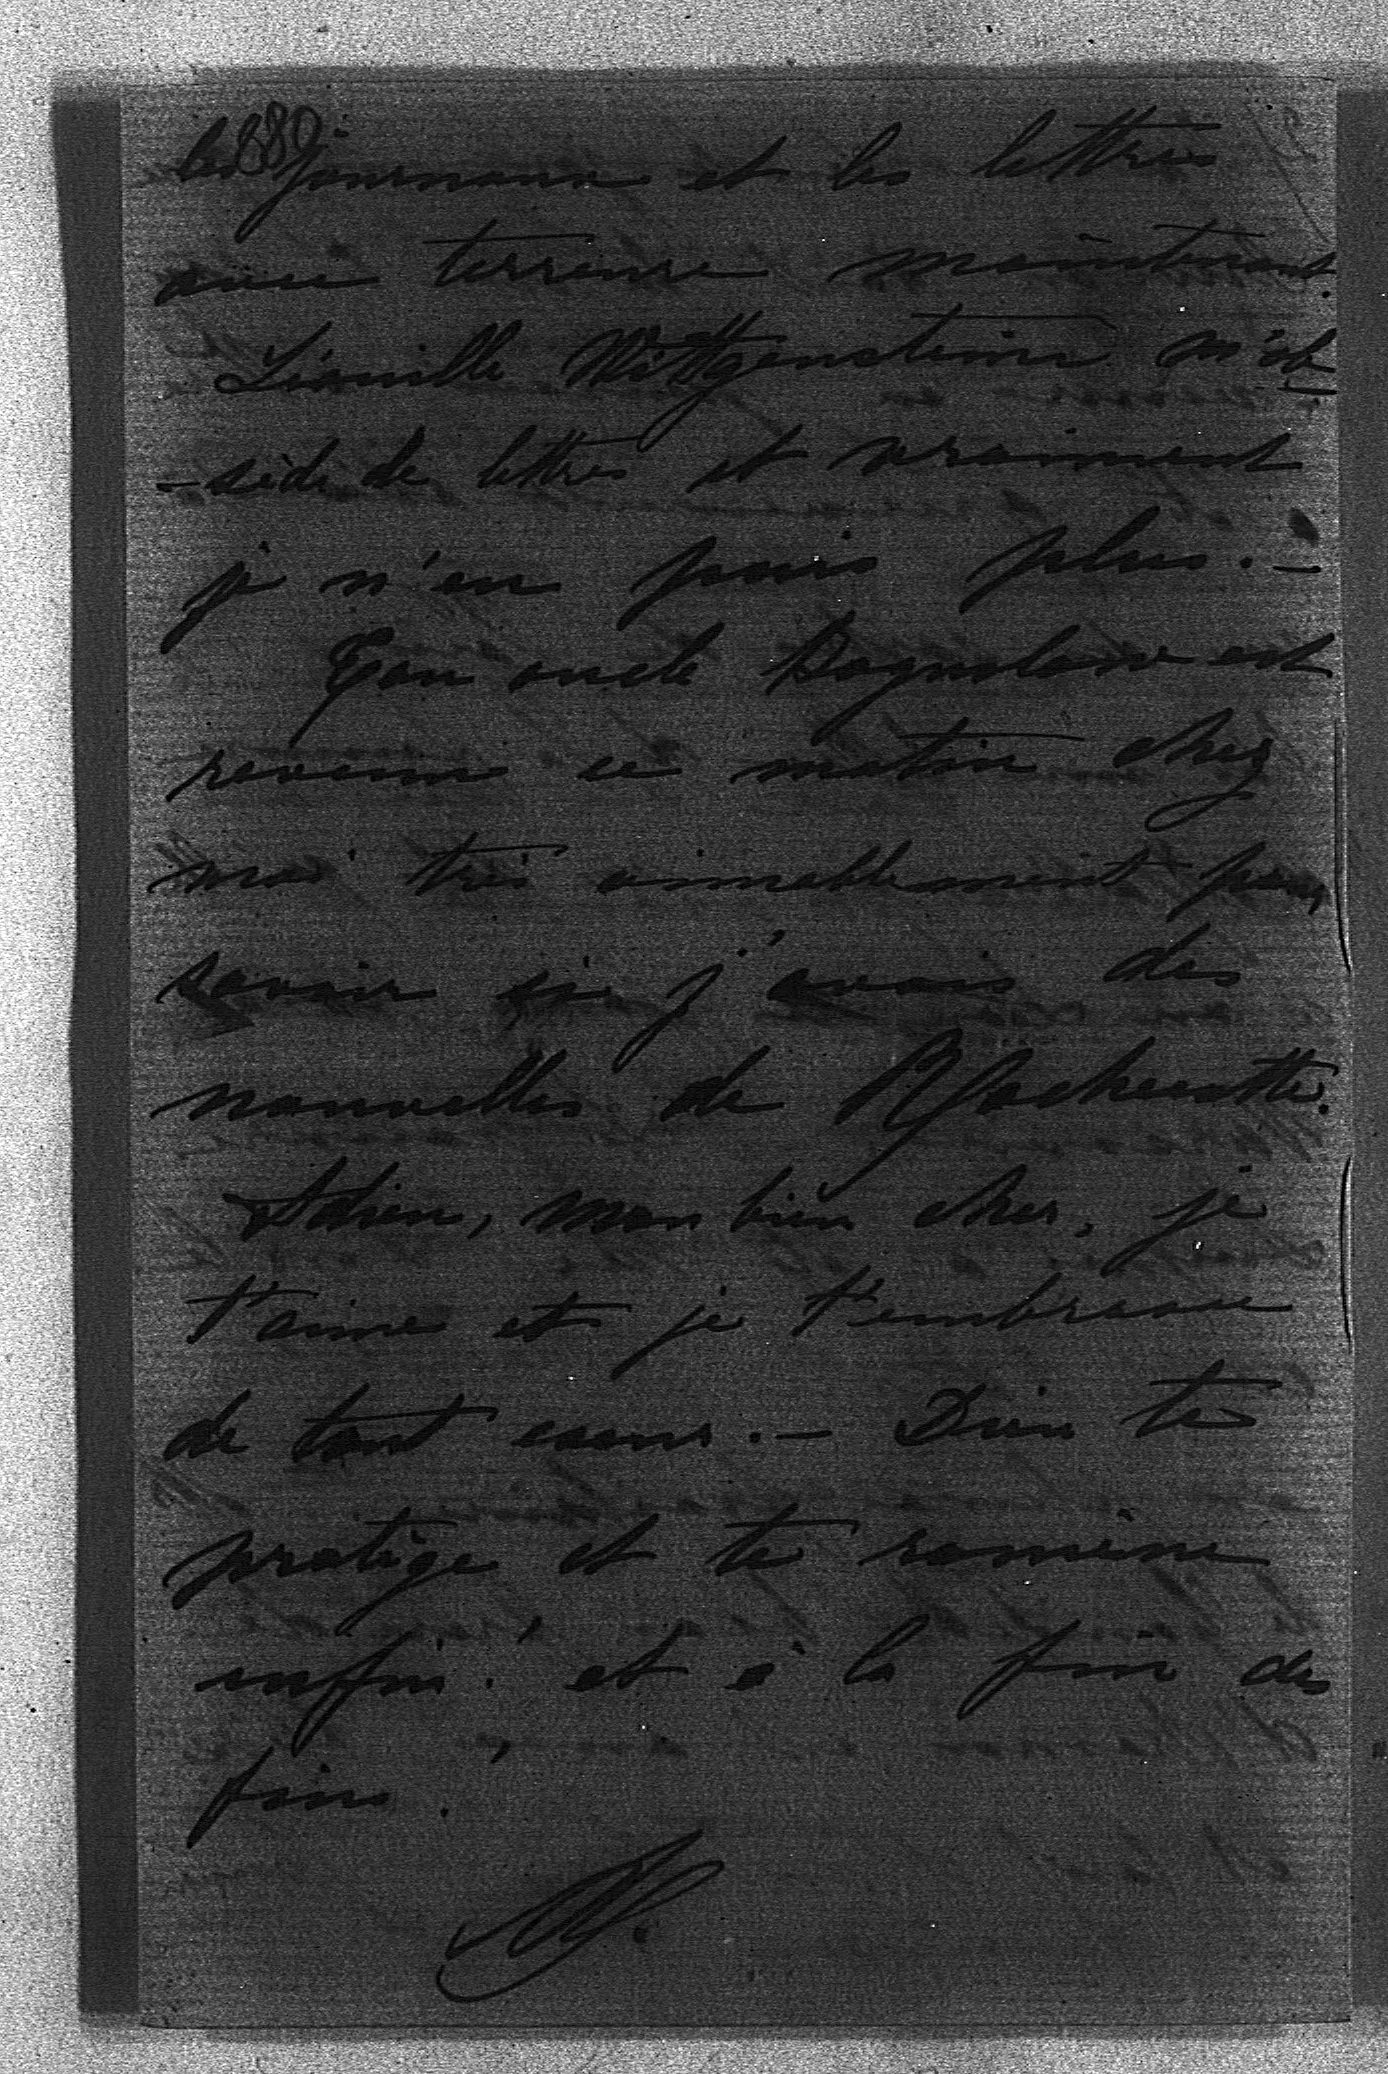 889
les journaux et les lettres
avec terreur maintenant.
Léonille Wittgenstein m'ob-
-sède de lettres et vraiment
je n'en puis plus. -
Ton oncle Boguslaw est
revenu ce matin chez
moi très aimablement pour
savoir si j'avais des
nouvelles de
Adieu, mon bien cher, je
t'aime et je t'embrasse
de tout coeur. - Dieu te
protège et te ramène
enfin! et à la fin des
fins!
M.